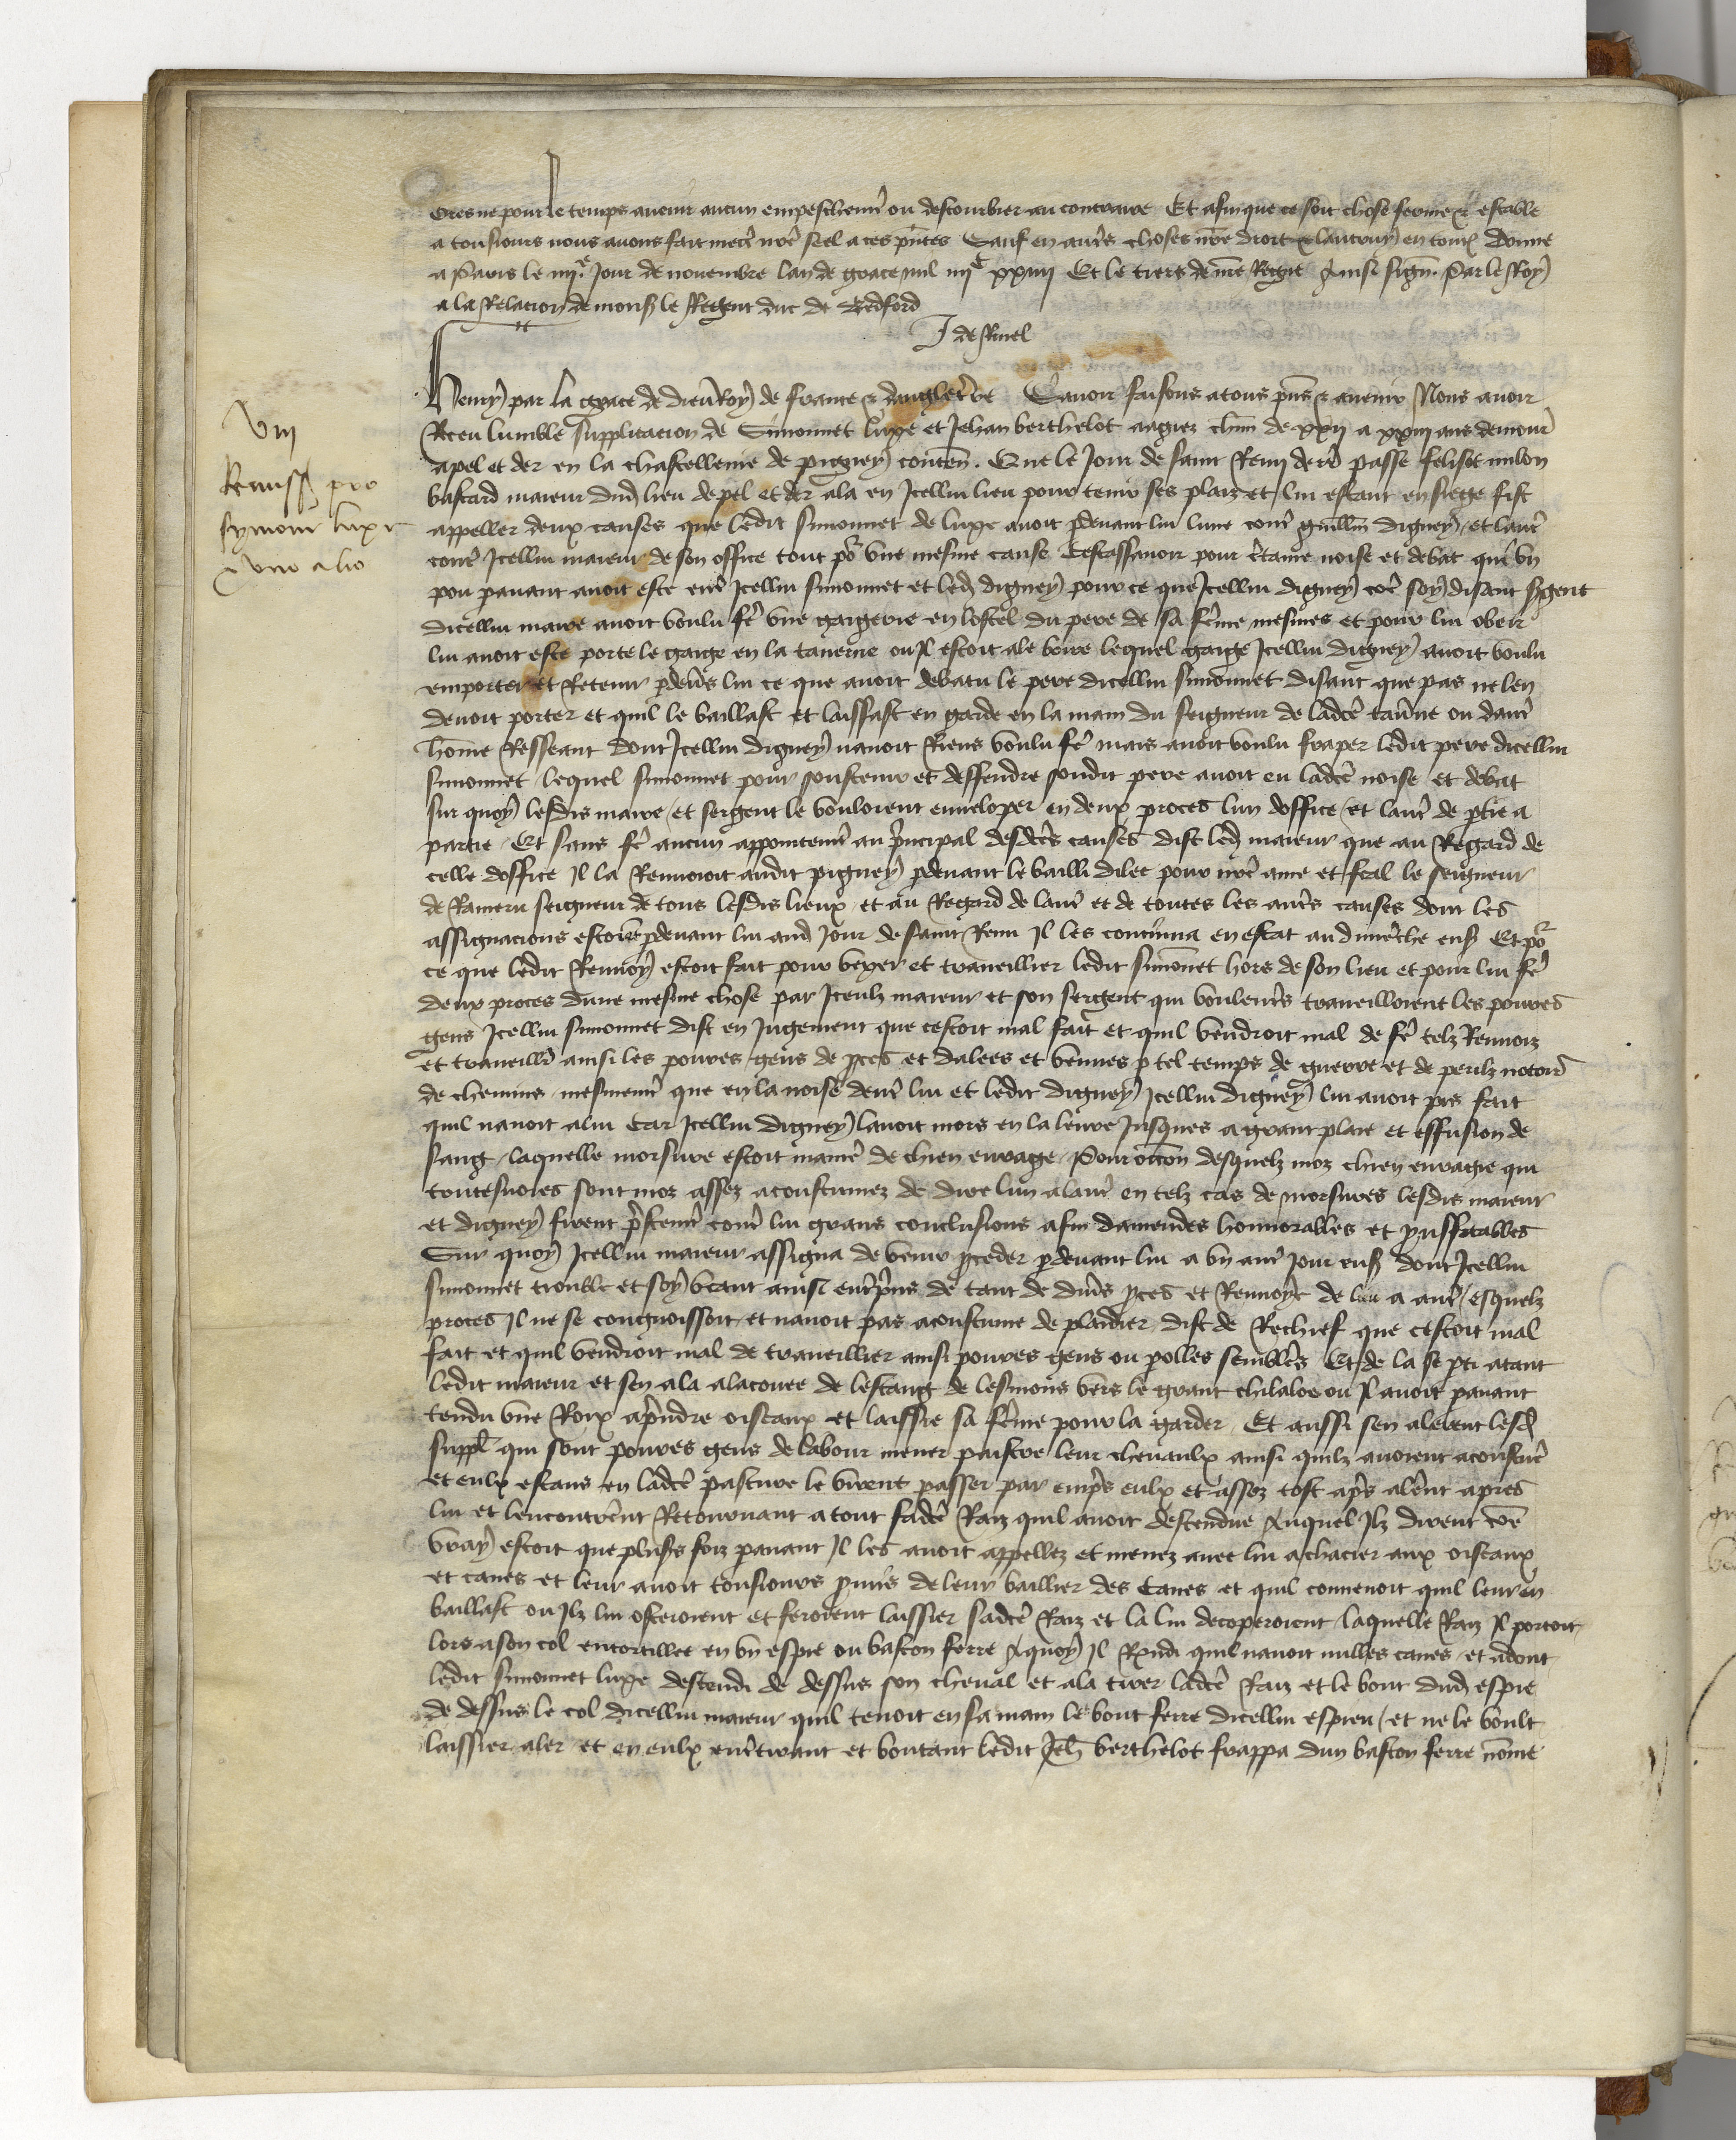 ores ne pour le temps avenir aucun empeschemt ou destourbier au contraire Et afin que ce soit chose ferme & estable
a tousiours nous avons fait mectre nre seel a ces pntes Sauf en autres choses nre droit & lautruy en toutes Donne
a Paris le iiije Jour de novembre lan de grace mil iiijc xxiiij Et le tiers de nre Regne Ainsi signe Par le Roy
a la Relacion de mons le Regent duc de Bedford
J de Rinel
viij
Remissio pro
symone luxe
& uno alio
Henry par la grace de dieu Roy de france & dangleterre Savoir faisons a tous pns & avenir Nous avoir
Receu lumble supplicacion de Simonnet luxe et Jehan berthelot aagiez chun de xxij a xxiij ans demour
a pel et der en la chastellenie de pigney conten. Que le Jour de saint Remi derr passe felisot milon
bastard maieur dud lieu de pel et der ala en Jcellui lieu pour tenir ses plaiz et lui estant en siege fist
appeller deux causes que ledit simonnet de luxe avoit pdevant lui lune contre guillm digney et lautre
contre Jcellui maieur de son office tout por une mesme cause Cestassavoir pour ctaine noise et debat qui un
pou paravant avoit este entre Jcellui simonnet et led digney pour ce que Jcellui digney soy disant sgent
dicellui maire avoit voulu fe une gaigerie en lostel du pere de sa femme mesmes et pour lui obeir
lui avoit este porte le gaige en la taverne ou Jl estoit ale boire lequel gaige Jcellui digney avoit voulu
emporter et Retenir pdevs lui ce que avoit debatu le pere dicellui simonnet disant que pas ne len
devoit porter et quil le baillast et laissast en garde en la main du seigneur de ladce tavne ou dautre
home Resseant dont Jcellui digney navoit Riens voulu fe mais avoit voulu fraper ledit pere dicellui
simonnet lequel simonnet pour soustenir et deffendre sondit pere avoit eu ladce noise et debat
sur quoy lesdis maire et sergent le vouloient enveloper en deux proces lun doffice et lautre de ptie a
partie Et sans fe aucun appointemt au principal desdces causes dist led maieur que au Regard de
celle doffice Jl la Renvoioit audit pigney pdevant le bailli dilec pour nre ame et feal le seigneur
de Rameru seigneur de tous lesdis lieux et au Regard de lautre et de toutes les autres causes dont les
assignacions estoient pdevant lui aud Jour de saint Remi Jl les continua en estat au dimenche ens Et por
ce que ledit Renvoy estoit fait pour vexer et traveillier ledit simonnet hors de son lieu et pour lui fe
deux proces dune mesme chose par Jceulz maieur et son sergent qui voulentrs traveilloient les povres
gens Jcellui simonnet dist en Jugement que cestoit mal fait et quil vendroit mal de fe telz Renvoiz
et traveillr ainsi les povres gens de pces et dalees et venues p tel temps de guerre et de perilz notoire
de chemins mesmemt que en la noise dentre lui et ledit digney Jcellui digney lui avoit pis fait
quil navoit a lui Car Jcellui digney lavoit mors en la levre Jusques a grant plaie et effusion de
sang laquelle morsure estoit maniere de chien enrage Pour occon desquelz moz chien enragie qui
toutesvoies sont moz assez acoustumez de dire lun a lautre en telz cas de morsures lesdis maieur
et digney firent prestemt contre lui grans conclusions afin damendes honnorables et pouffitables
Sur quoy Jcellui maieur assigna de venir pceder pdevant lui a un autre Jour ens dont Jcellui
simonnet trouble et soy veant ainsi entreprins de tant de divs pces et Renvoye de lieu a autre esquelz
proces Jl ne se congnoissoit et navoit pas acoustume de plaidier dist de Rechief que cestoit mal
fait et quil vendroit mal de traveillier ainsi povres gens ou parolles semblables Et de la se pti atant
ledit maieur et sen ala a la couee de lestang de lesmous vers le grant chilaloe ou Jl avoit pavant
tendu une Roix a prendre oiseaux et laissie sa femme pour la garder Et aussi sen alerent lesd
suppl qui sont povres gens de labour mener paistre leur chevaulx ainsi quilz avoient acoustume
et eulx estans en ladce pasture le virent passer par empres eulx et assez tost apres alernt apres
lui et lencontrernt Retournant a tout sadce Raiz quil avoit destendue Auquel Jlz dirent
vray estoit que plusrs foiz pavant Jl les avoit appellez et menez avec lui a chacier aux oiseaux
et canes et leur avoit tousiours pmis de leur baillier des Canes et quil convenoit quil leur en
baillast ou Jlz lui osteroient et feroient laissier sadce Raiz et la lui decoperoient laquelle Raiz Jl portoit
lors a son col entortillee en un espie ou baston ferre A quoy Jl Rpndi quil navoit nulles canes et adont
ledit simonnet luxe descendi de dessus son cheval et ala tirer ladce Raiz et le bout dud espie
de dessus le col dicellui maieur quil tenoit en sa main le bout ferre dicellui espieu et ne le voult
laissier aler et en eulx entretirant et boutant ledit Jeh berthelot frappa dun baston ferre nomme